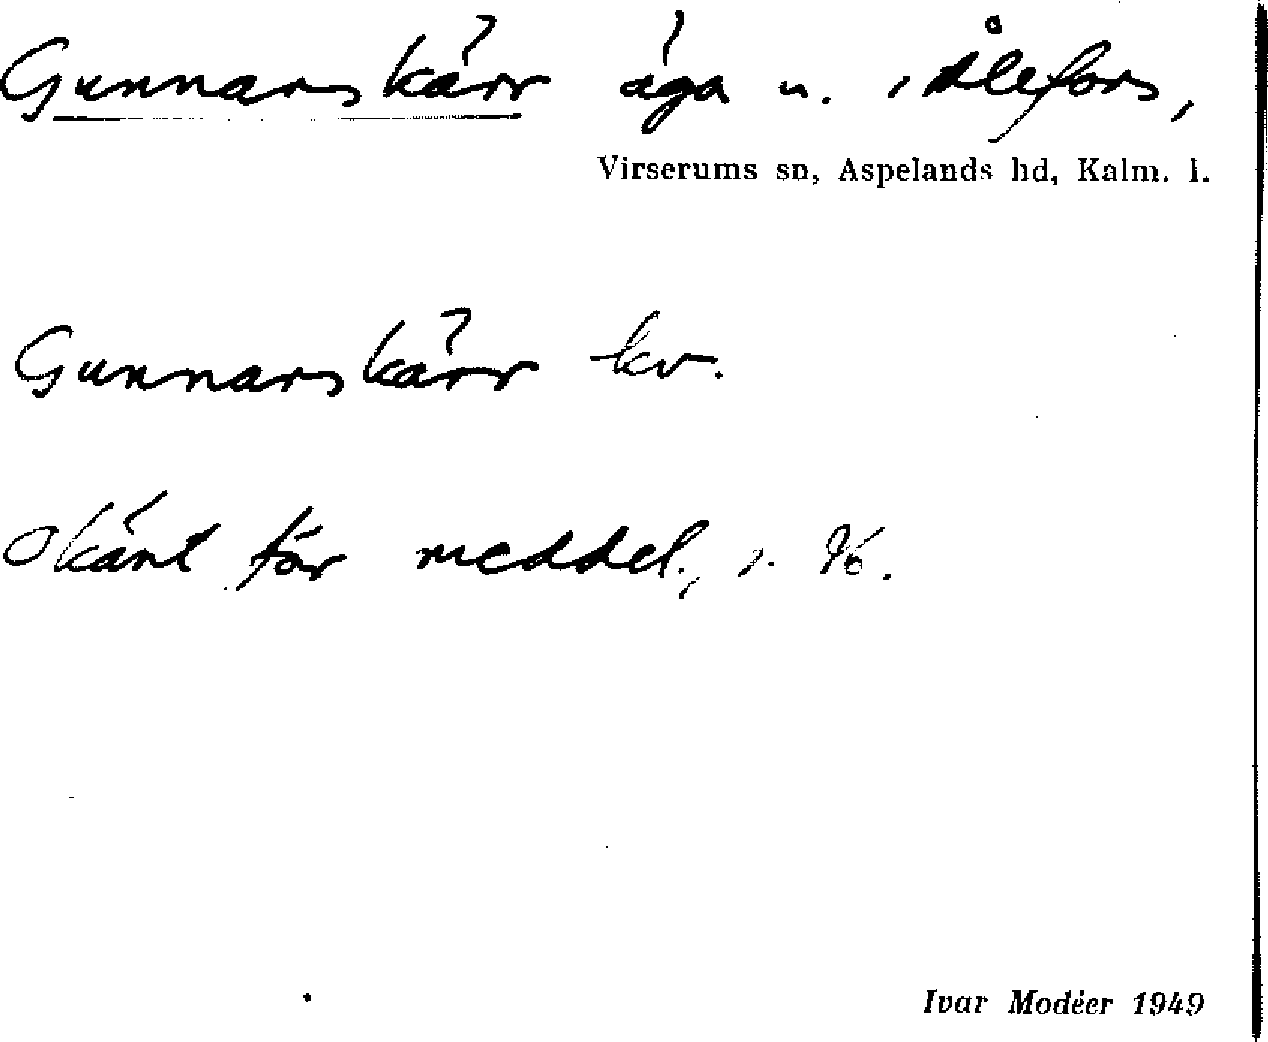 Gunnarskärr äga u. i Ålefors,
Virserums sn, Aspelands hd, Kalm. l.
Gunnarskärr kv.
Okänt för meddel., s. 96.
Ivar Modéer 1949